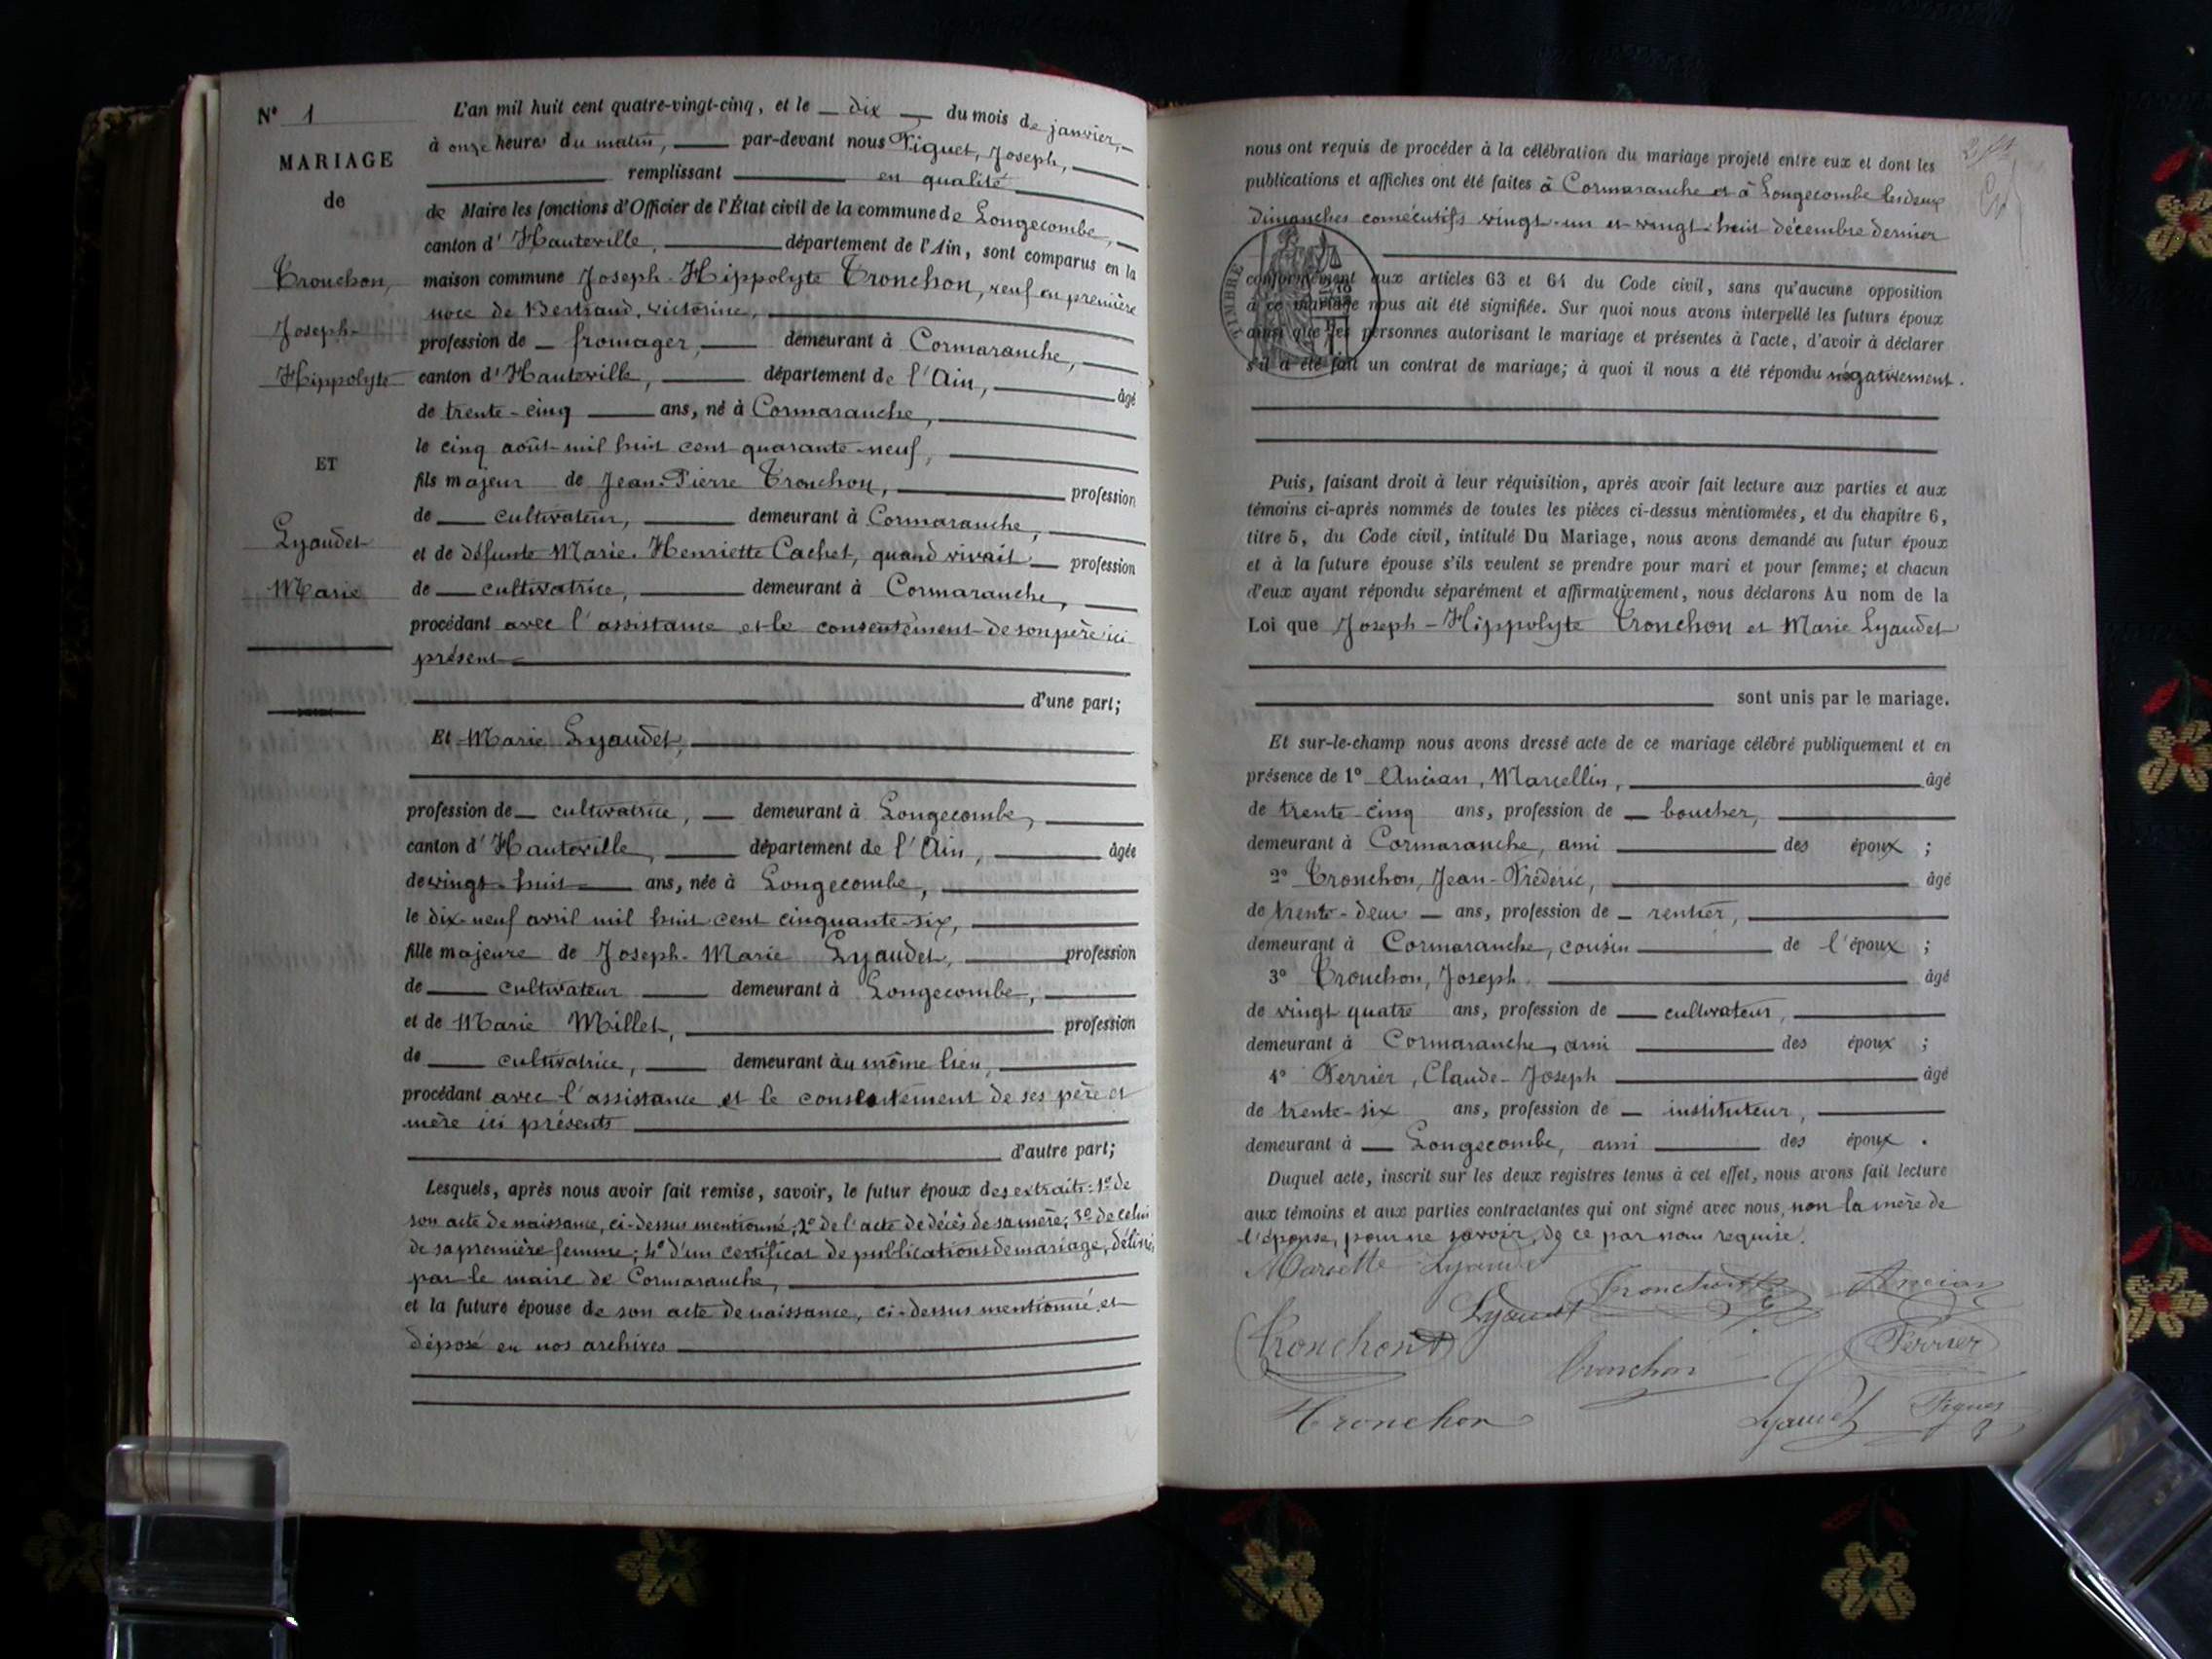 N° 1
MARIAGE
de
Tronchon,
Joseph-
Hippolyte
ET
Lyaudet
Marie
L'an mil huit cent quatre-vingt-cinq, et le dix du mois de janvier,
à onze heures du matin, par-devant nous Figuet, Joseph,
remplissant en qualité
de Maire les fonctions d'Officier de l'État civil de la commune de Longecombe,
canton d'Hauteville, département de l'Ain, sont comparus en la
maison commune Joseph-Hippolyte Tronchon, veuf en première
noce de Bertrand, Victorine,
profession de fromager, demeurant à Cormaranche,
canton d'Hauteville, département de l'Ain, âgé
de trente-cinq ans, né à Cormaranche,
le cinq août mil huit cent quarante-neuf,
fils majeur de Jean-Pierre Tronchon, profession
de cultivateur, demeurant à Cormaranche,
et de défunte Marie-Henriette Cachet, quand vivait profession
de cultivatrice, demeurant à Cormaranche,
procédant avec l'assistance et le consentement de son père ici
présent
d'une part;
Et Marie Lyaudet,
profession de cultivatrice, demeurant à Longecombe,
canton d'Hauteville, département de l'Ain, âgée
de vingt-huit ans, née à Longecombe,
le dix-neuf avril mil huit cent cinquante-six,
fille majeure de Joseph-Marie Lyaudet, profession
de cultivateur demeurant à Longecombe,
et de Marie Millet, profession
de cultivatrice, demeurant au même lieu,
procédant avec l'assistance et le consentement de ses père et
mère ici présents
d'autre part;
Lesquels, après nous avoir fait remise, savoir, le futur époux des extraits: 1° de
son acte de naissance, ci-dessus mentionné; 2° de l'acte de décès de sa mère; 3° de celui
de sa première femme; 4° d'un certificat de publications de mariage, délivré
par le maire de Cormaranche,
et la future épouse de son acte de naissance, ci-dessus mentionné et
déposé en nos archives
nous ont requis de procéder à la célébration du mariage projeté entre eux et dont les
publications et affiches ont été faites à Cormaranche et à Longecombe les deux
dimanches consécutifs vingt-un et vingt-huit décembre dernier
TIMBRE
conformément aux articles 63 et 64 du Code civil, sans qu'aucune opposition
à ce mariage nous ait été signifiée. Sur quoi nous avons interpellé les futurs époux
ainsi que les personnes autorisant le mariage et présentes à l'acte, d'avoir à déclarer
s'il a été fait un contrat de mariage; à quoi il nous a été répondu négativement.
Puis, faisant droit à leur réquisition, après avoir fait lecture aux parties et aux
témoins ci-après nommés de toutes les pièces ci-dessus mentionnées, et du chapitre 6,
titre 5, du Code civil, intitulé Du Mariage, nous avons demandé au futur époux
et à la future épouse s'ils veulent se prendre pour mari et pour femme; et chacun
d'eux ayant répondu séparément et affirmativement, nous déclarons Au nom de la
Loi que Joseph-Hippolyte Tronchon et Marie Lyaudet
sont unis par le mariage.
Et sur-le-champ nous avons dressé acte de ce mariage célébré publiquement et en
présence de 1° Ancian, Marcellin, âgé
de trente-cinq ans, profession de boucher,
demeurant à Cormaranche, ami des époux ;
2° Tronchon, Jean-Frédéric, âgé
de trente-deux ans, profession de rentier,
demeurant à Cormaranche, cousin de l'époux ;
3° Tronchon, Joseph. âgé
de vingt quatre ans, profession de cultivateur,
demeurant à Cormaranche, ami des époux ;
4° Ferrier, Claude-Joseph âgé
de trente-six ans, profession de instituteur,
demeurant à Longecombe, ami des époux .
Duquel acte, inscrit sur les deux registres tenus à cet effet, nous avons fait lecture
aux témoins et aux parties contractantes qui ont signé avec nous, non la mère de
l'épouse, pour ne savoir, de ce par nous requise.
Lyaudet
Tronchon Ancian
Lyaudet
Tronchon Ferrier
Tronchon
Tronchon Lyaudet Figuet